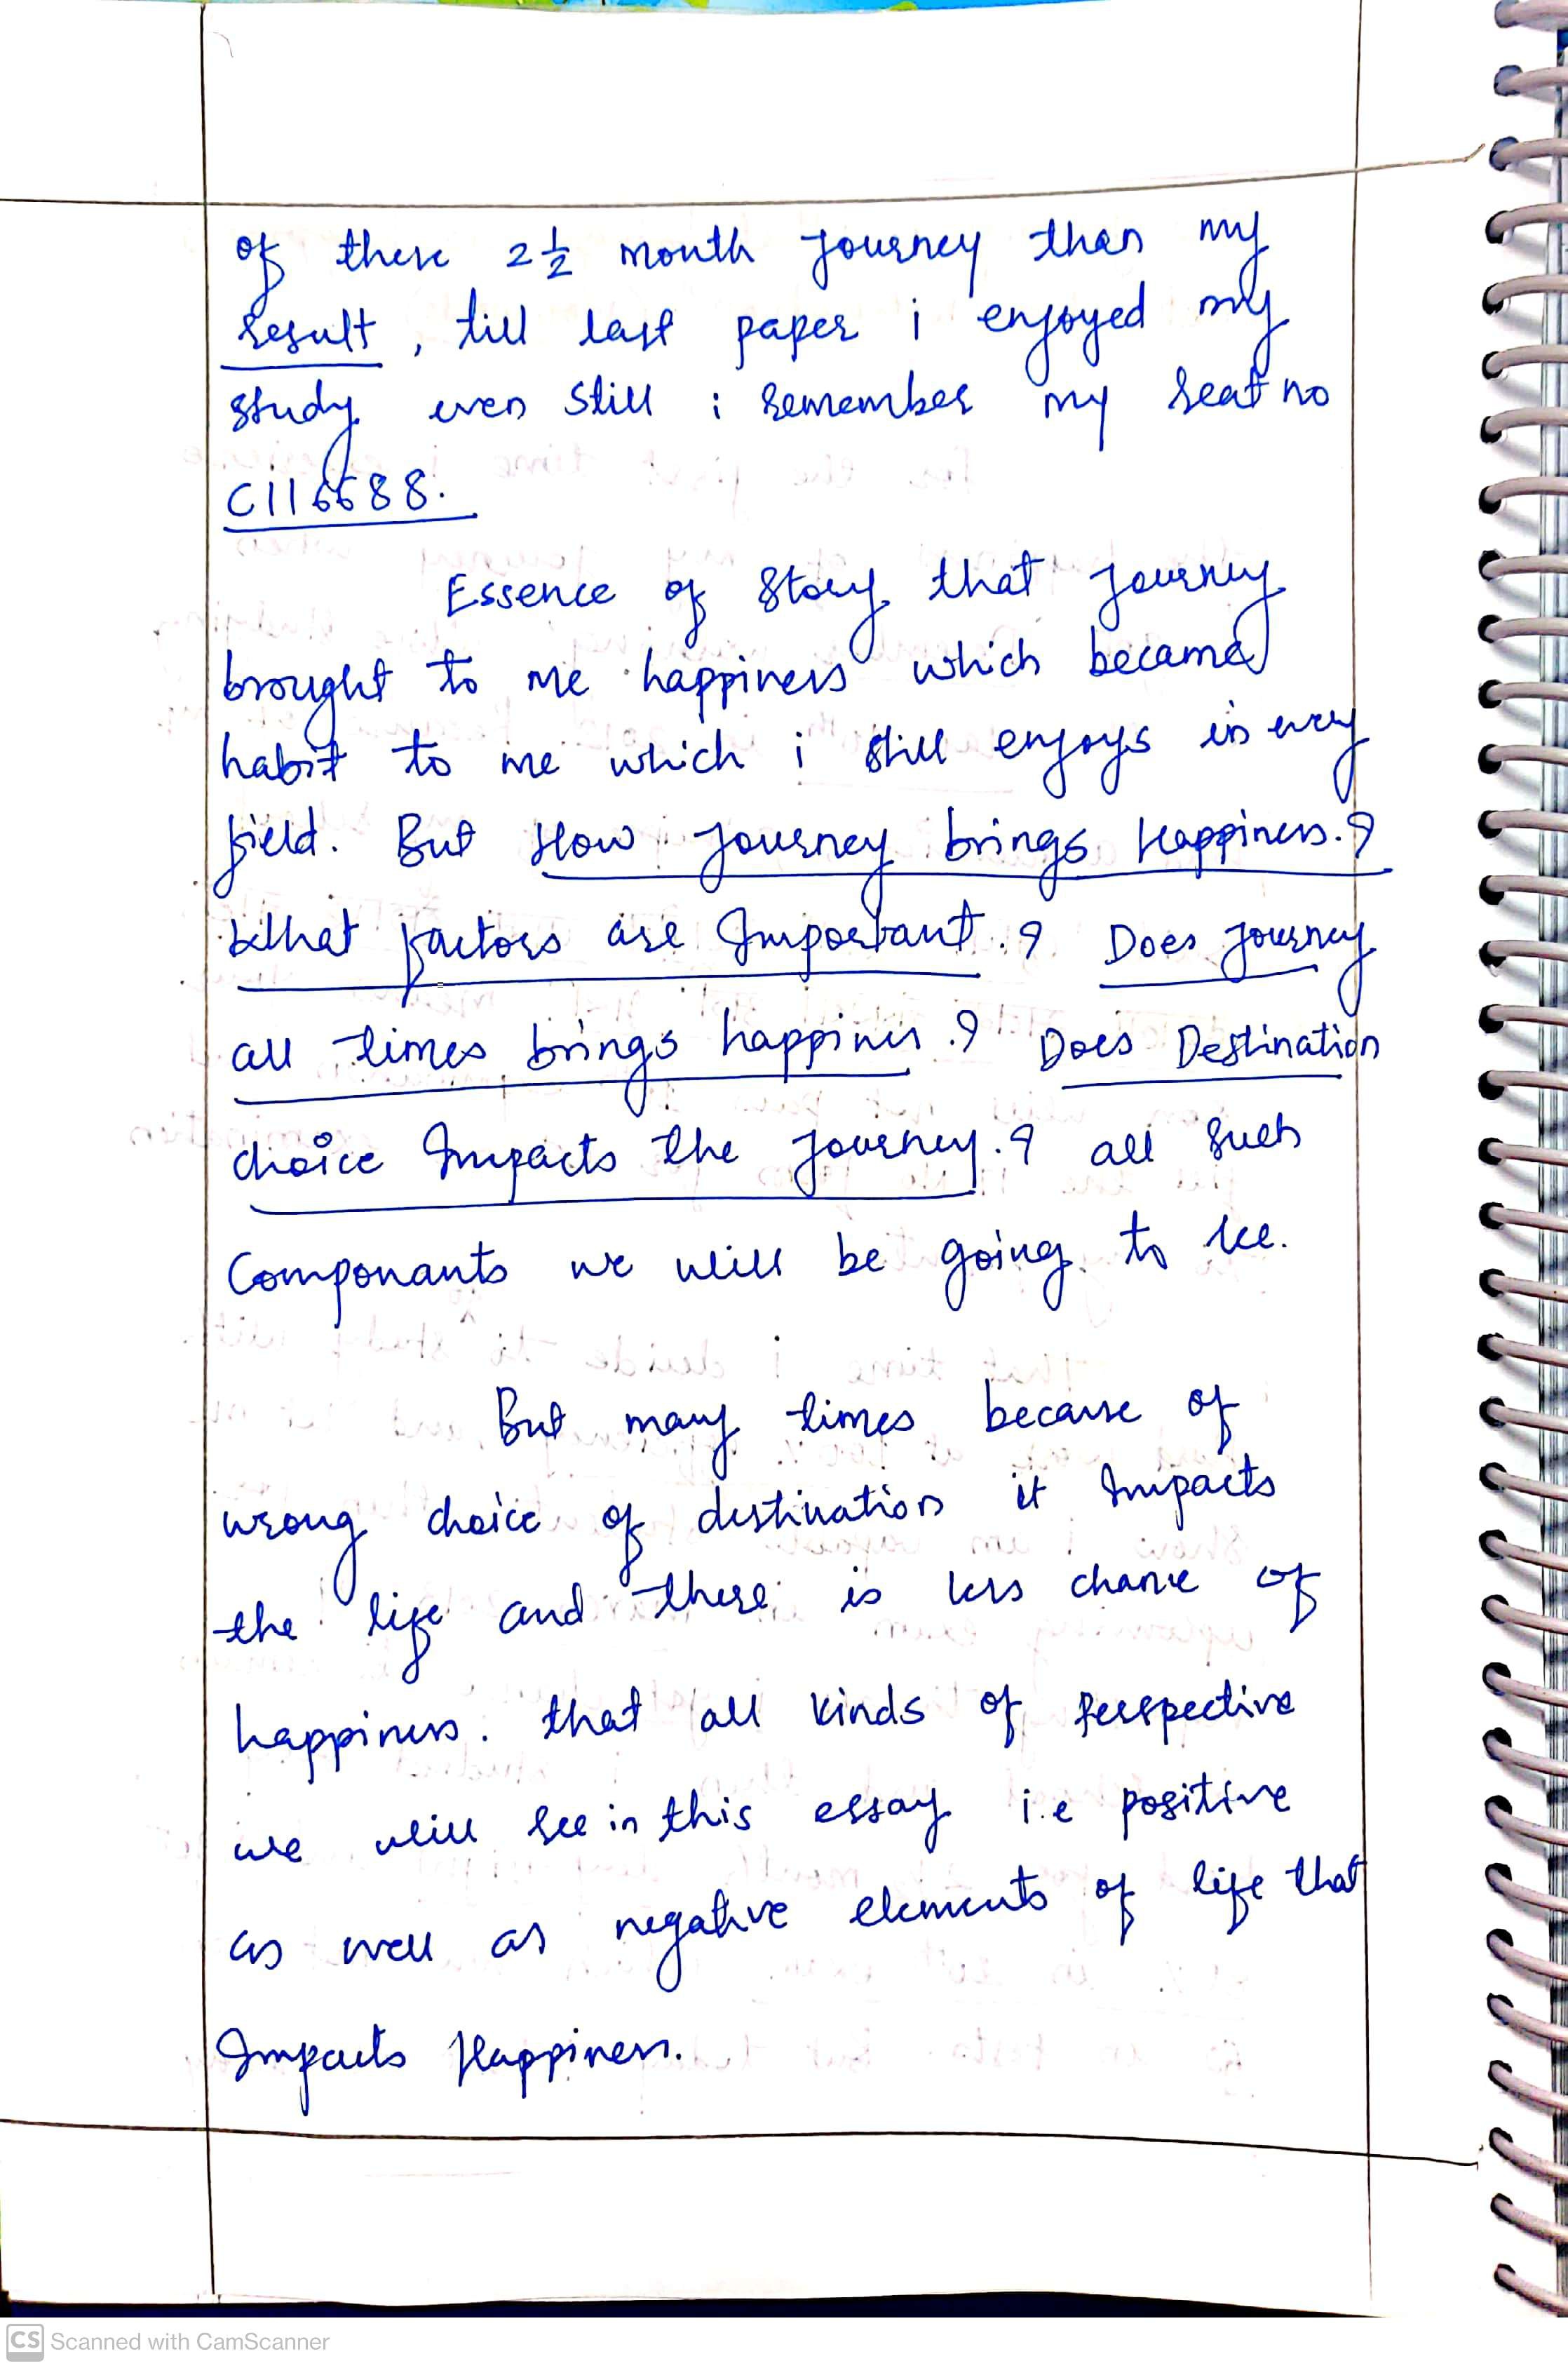 of these 2½ month Journey than my
result, till last paper i enjoyed my
study even still i remember my seat no
C116688.
Essence of story that Journey
brought to me happiness which became
habit to me which i still enjoys in every
field. But How Journey brings Happiness.?
What factors are Important.? Does Journey
all times brings happiness.? Does Destination
choice Impacts the Journey.? all such
Componants we will be going to see.
But many times because of
wrong choice of destination it Impacts
the life and there is less chance of
happiness. that all kinds of Perspective
we will see in this essay i.e positive
as well as negative elements of life that
Impacts Happiness.
CS Scanned with CamScanner